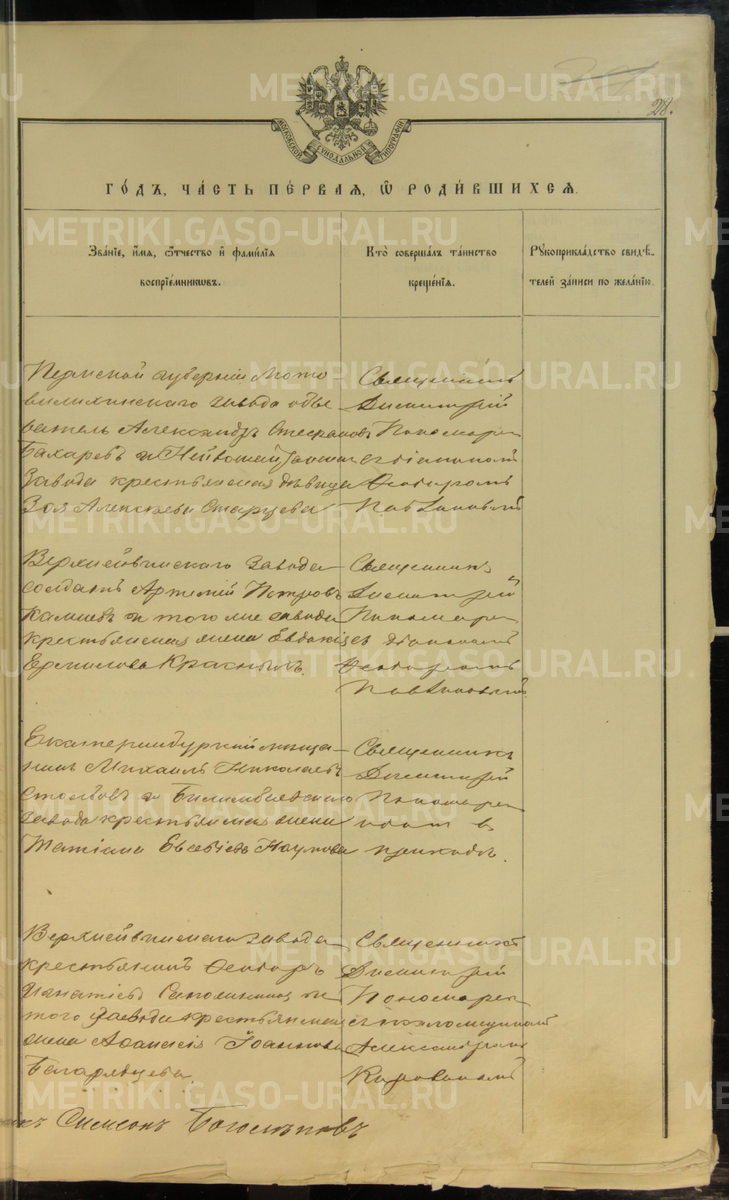 28.
МОСКОВСКОЙ СѴНОДАЛЬНОЙ ТИПОГРАФІИ
ГО́ДЪ, ЧА́СТЬ ПЕ́РВАЯ, Ѡ҆ РОДИ́ВШИХСЯ.
Зва́нїе, и҆́мя, ѻ҆́тчество и҆ фами́лїя
воспрїе́мникѡвъ.
Кто̀ соверша́лъ та́инство
креще́нїя.
Рꙋкоприкла́дство свидѣ́-
телей за́писи по жела́нїю.
Пермской губерніи Мото
вилихинскаго завода обы
ватель Александръ Стефановъ
Бахаревъ и
завода крестьянская дѣвица
Зоя Алексѣева Старцева
Священникъ
Димитрій
Пономаревъ
съ діакономъ
Ѳеодоромъ
Верхнейвинскаго завода
солдатъ Артемій Петровъ
и того же завода
крестьянская жена Евдокія
Ермилова Красныхъ.
Священникъ
Димитрій
Пономаревъ
съ діакономъ
Ѳеодоромъ
Екатеринбургскій мѣща-
нинъ Михаилъ Николаевъ
Столбовъ и Билимбаевскаго
завода крестьянская жена
Татіана Евсевіева Наумова
Священникъ
Димитрій
Пономаревъ
въ
приходѣ.
Верхнейвинскаго завода
крестьянинъ Ѳеодоръ
Игнатіевъ и
того завода крестьянская
жена Аѳанасія Іоаннова
Белорядцева
Священникъ
Димитрій
Пономаревъ
съ псаломщикомъ
Александромъ
Симеонъ Богослѣповъ
METRIKI.GASO-URAL.RU